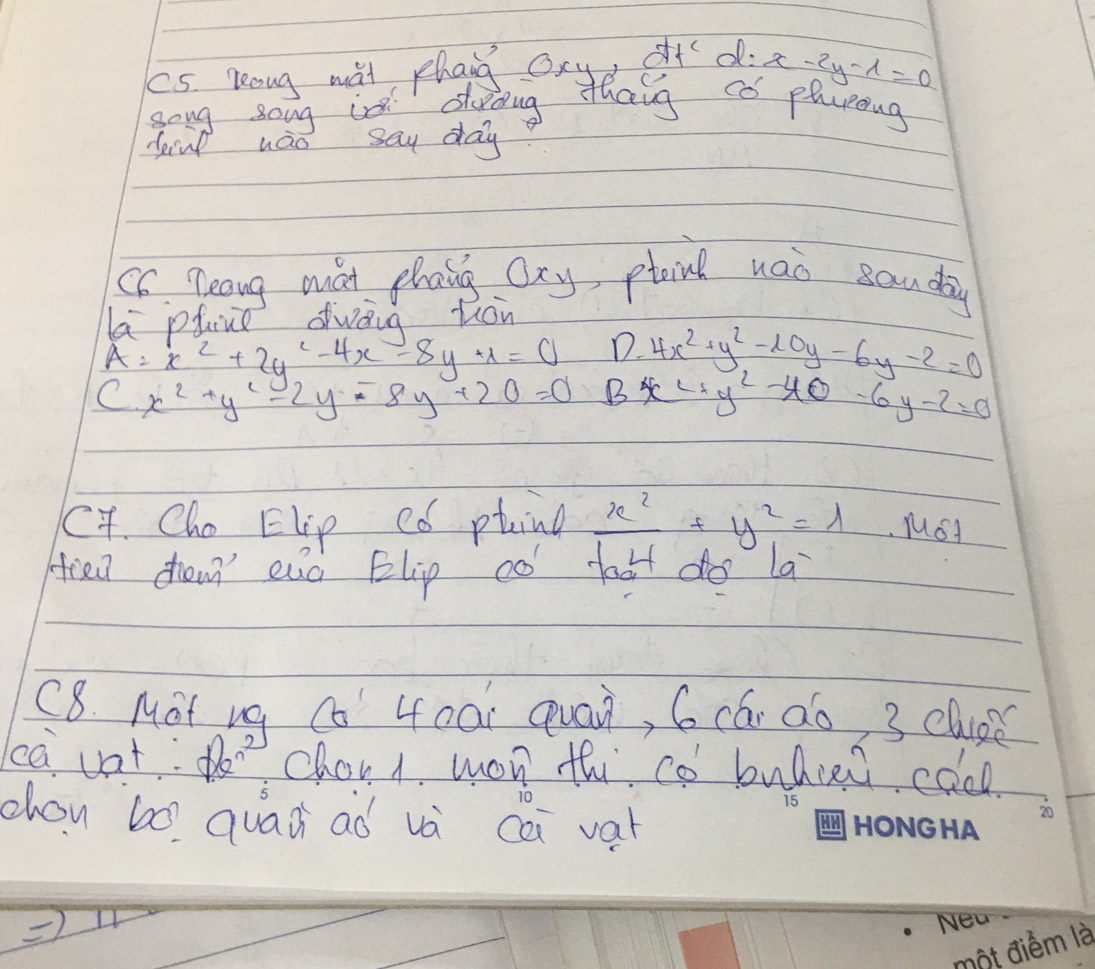 C5. Trong mặt phẳng Oxy, đt d: x - 2y - 1 = 0
song song với đường thẳng có phương
trình nào sau đây ?
C6 Trong mặt phẳng Oxy, ptrình nào sau đây
là ptrình đường tròn
A: x² + 2y² - 4x - 8y + 1 = 0 D. 4x² + y² - 10y - 6y - 2 = 0
C. x² + y² - 2y - 8y + 20 = 0 B x² + y² - 40 - 6y - 2 = 0
C7. Cho Elip có ptrình x²/4 + y² = 1. Một
tiêu điểm của Elip có toạ độ là
C8. Một ng có 4 cái quần, 6 cái áo, 3 chiếc
cà vạt. Để chọn 1 món thì có bnhiêu cách
chọn bộ quần áo và cà vạt
5 10 15 20
HH HONG HA
=) 11
• Nếu
một điểm là